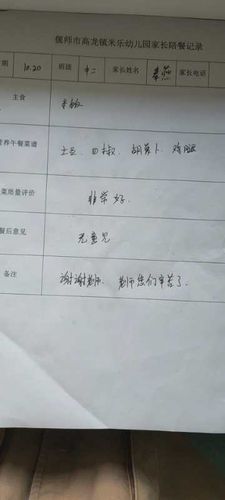 偃师市高龙镇米乐幼儿园家长陪餐记录
期 10.20 班级 中二 家长姓名 家长电话
主食 米饭
营养午餐菜谱 土豆、四椒、胡萝卜、鸡腿
菜质量评价 非常好
餐后意见 无意见
备注 谢谢老师、老师您们辛苦了.